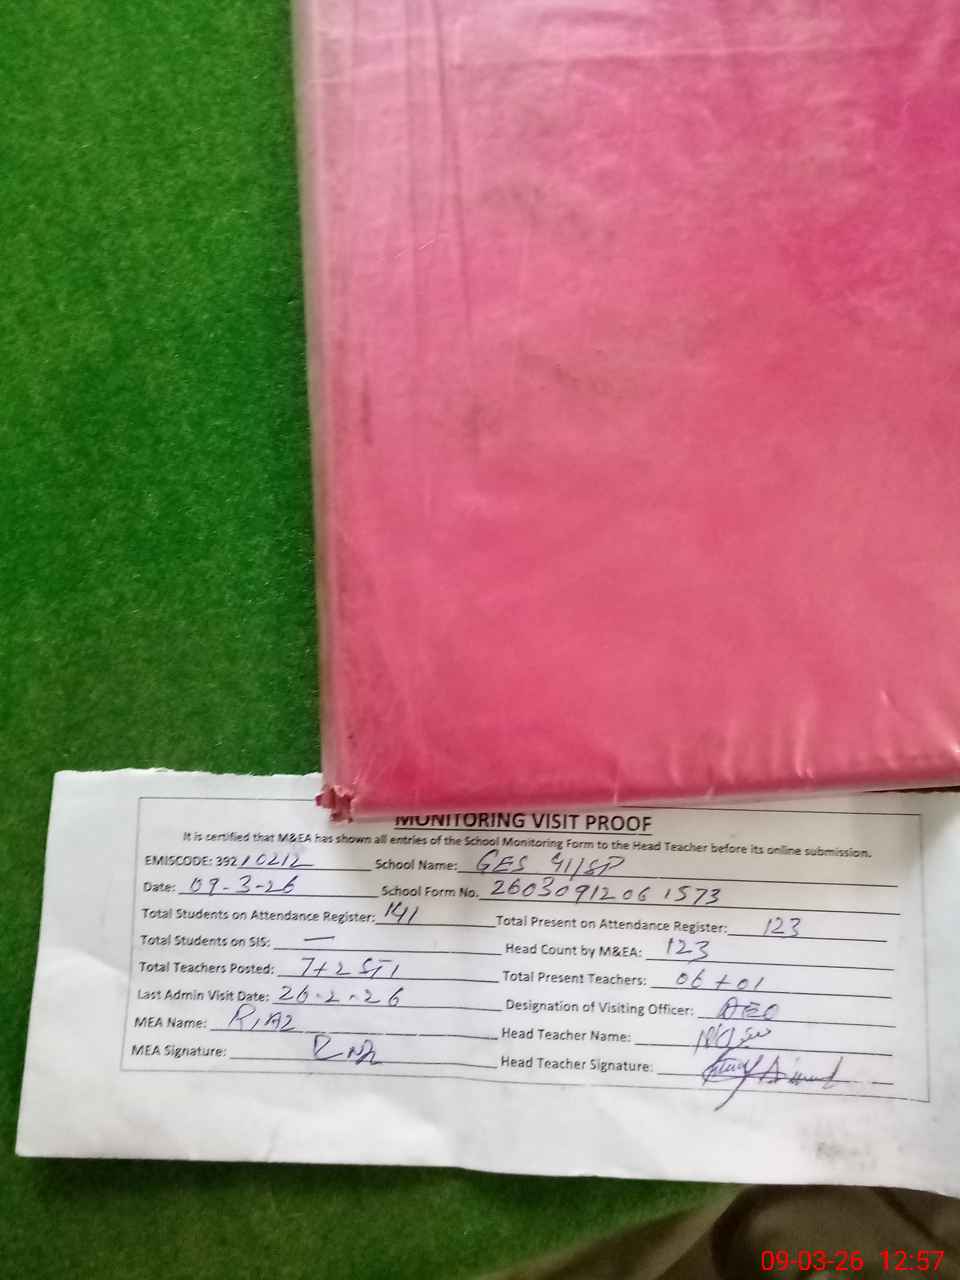 MONITORING VISIT PROOF
It is certified that M&EA has shown all entries of the School Monitoring Form to the Head Teacher before its online submission.
EMISCODE: 39210212 School Name: GES 41/SP
Date: 09-3-26 School Form No. 2603091206 1573
Total Students on Attendance Register: 141 Total Present on Attendance Register: 123
Total Students on SIS: — Head Count by M&EA: 123
Total Teachers Posted: 7+2 STI Total Present Teachers: 06 + 01
Last Admin Visit Date: 26-2-26 Designation of Visiting Officer: AEO
MEA Name: RIAZ Head Teacher Name:
MEA Signature: Head Teacher Signature:
09-03-26 12:57